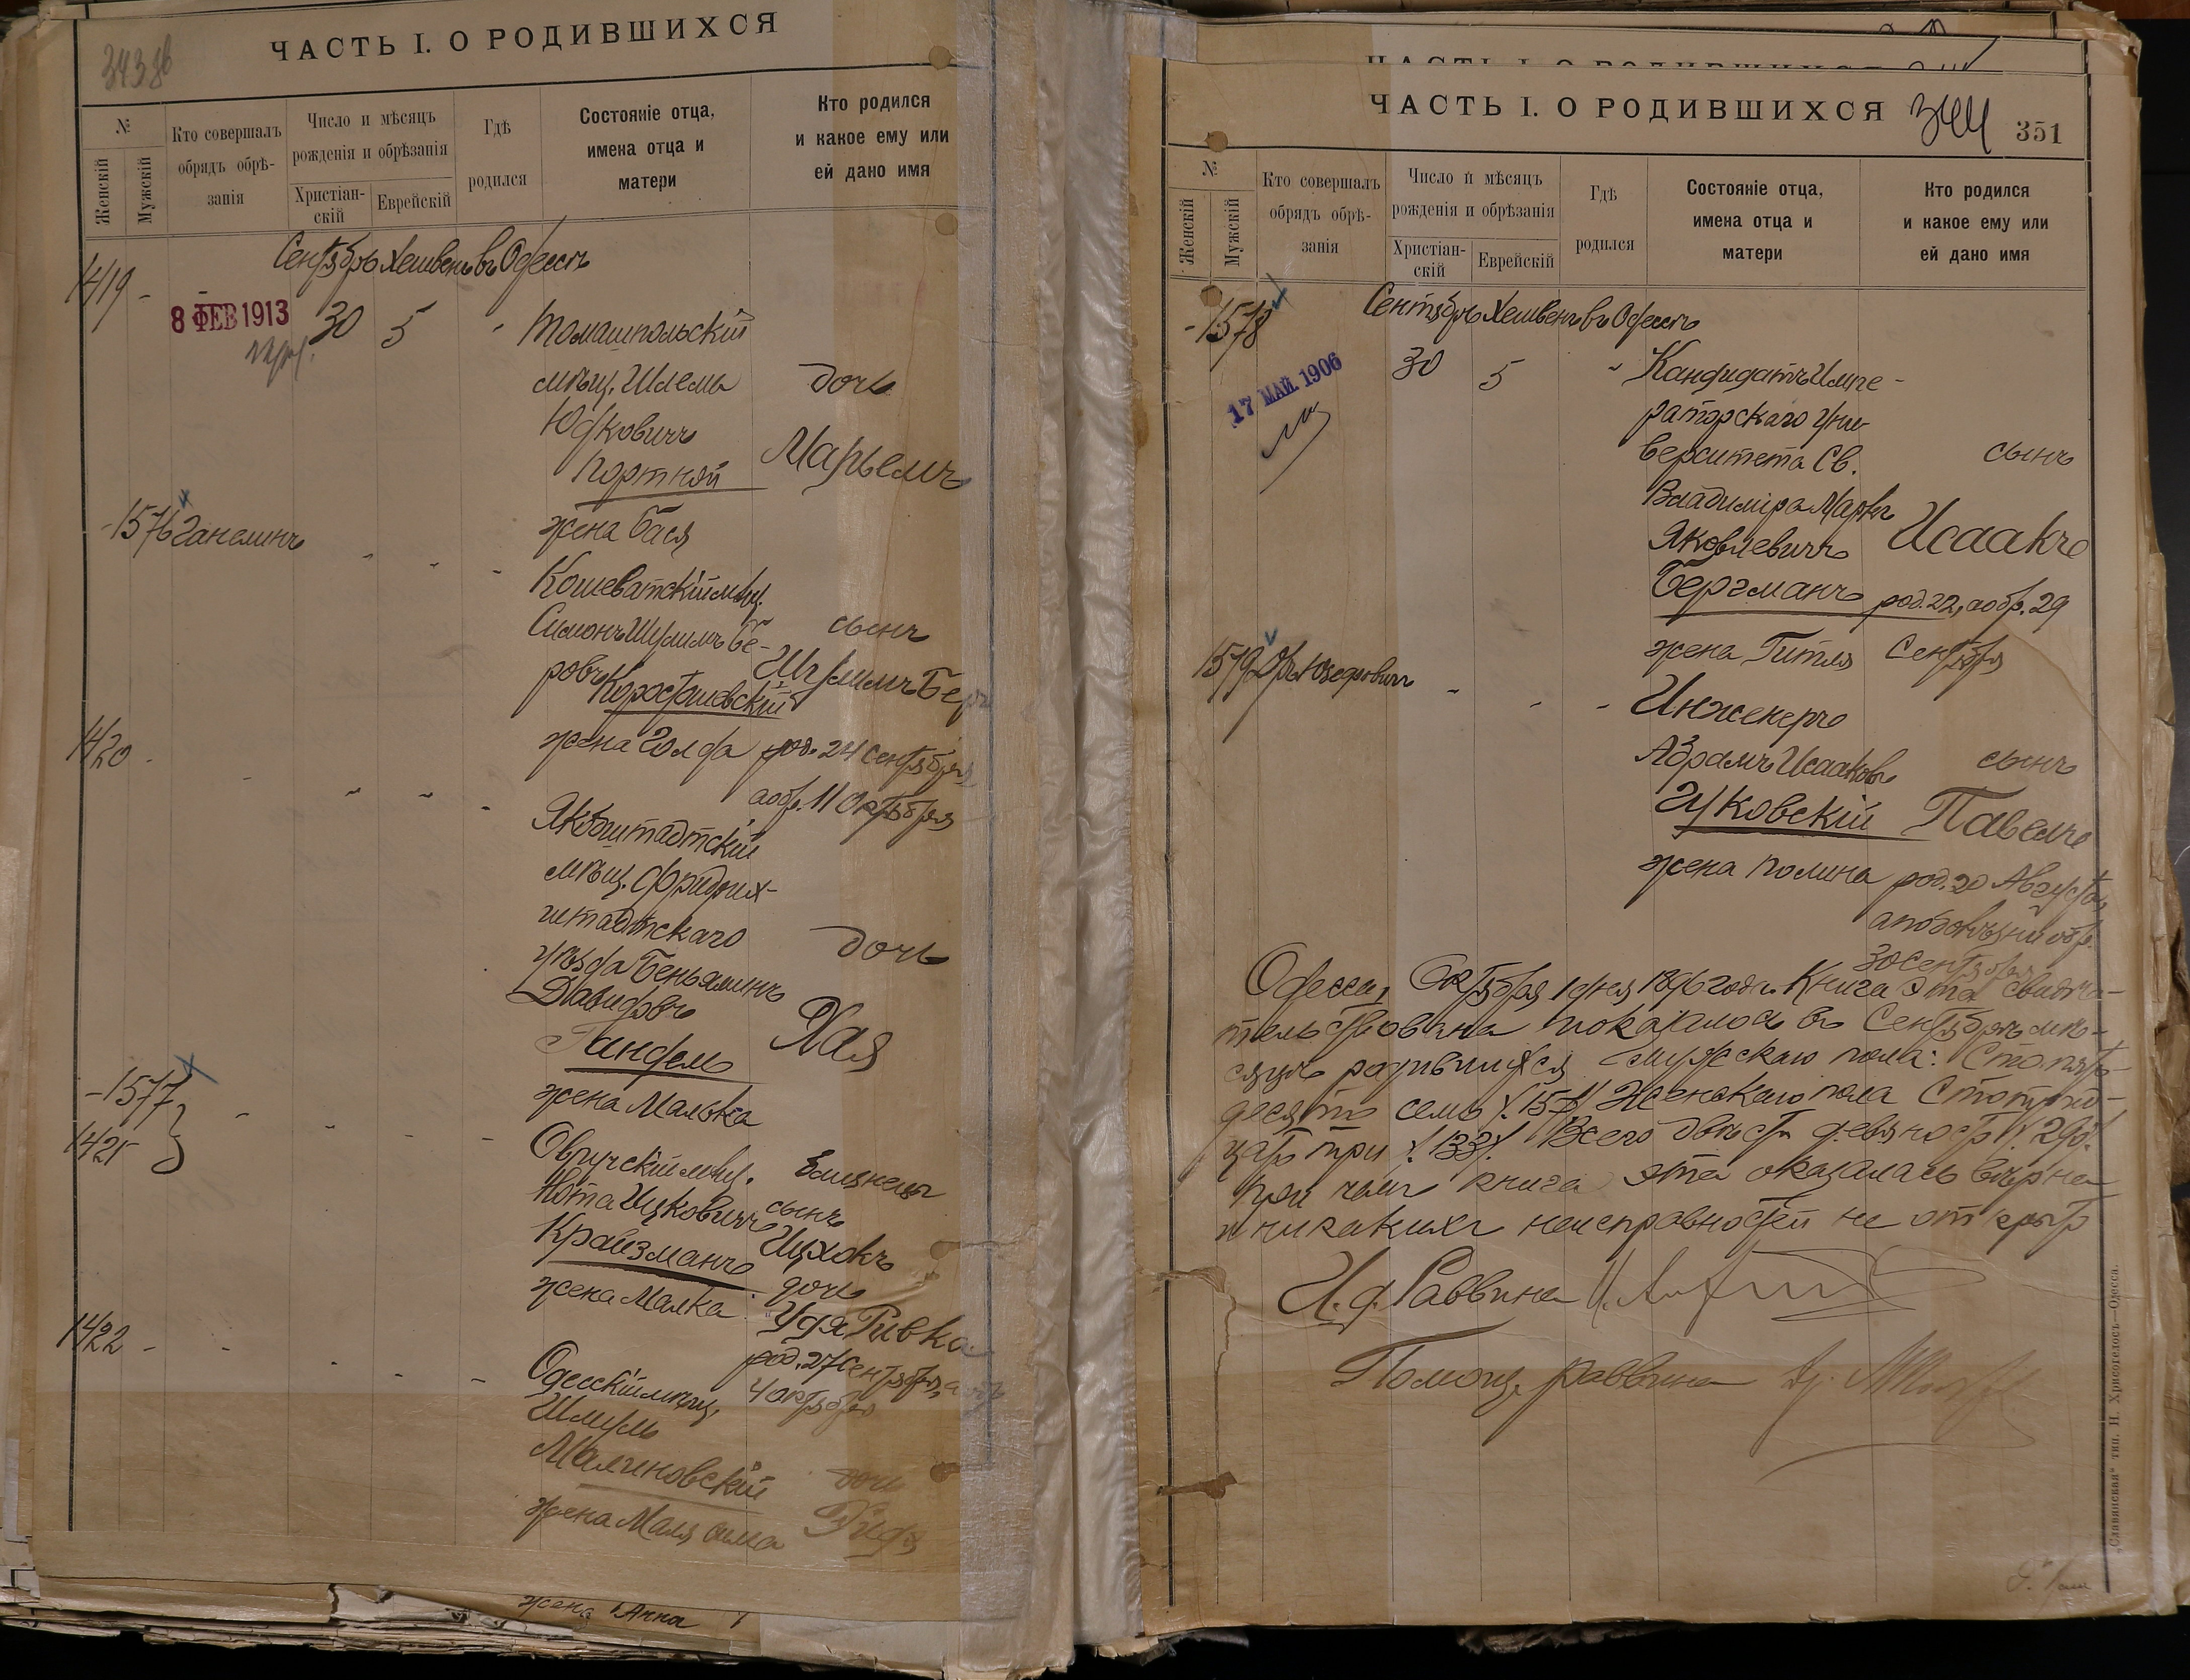 343 об
ЧАСТЬ I. О РОДИВШИХСЯ
№
Женскій
Мужскій
Кто совершалъ
обрядъ обрѣ-
занія
Число и мѣсяцъ
рожденія и обрѣзанія
Христіан-
скій
Еврейскій
Гдѣ
родился
Состояніе отца,
имена отца и
матери
Кто родился
и какое ему или
ей дано имя
Сентябрь Хешвенъ въ Одессѣ
1419 -
8 ФЕВ 1913
30 5
Томашпольскій
мѣщ. Шлема
Юдковичъ
Портной
жена Бася
дочь
Марьемъ
-1576 Ганелинъ
Кошеватскій мѣщ.
Симонъ Шулимъ Бе-
ровъ Коростышевскій
жена Голда
сынъ
Шулимъ Беръ
род. 24 Сентября
а обр. 11 Октября
1420 -
Якобштадтскій
мѣщ. Фридрих-
штадтскаго
уѣзда Беньяминъ
Давидовъ
Гандель
жена Малька
дочь
Хая
-1577
1421
Овручскій мѣщ.
Нота Ицковичъ
Крайзманъ
жена Малка
Близнецы
сынъ
Ицхокъ
дочь
Удя Ривка
род. 27 Сентября, а обр
4 Октября
1422 -
Одесскій мѣщ.
Шмуль
Малиновскій
жена Маля
дочь
жена Анна
ЧАСТЬ I. О РОДИВШИХСЯ
344
351
№
Женскій
Мужскій
Кто совершалъ
обрядъ обрѣ-
занія
Число и мѣсяцъ
рожденія и обрѣзанія
Христіан-
скій
Еврейскій
Гдѣ
родился
Состояніе отца,
имена отца и
матери
Кто родился
и какое ему или
ей дано имя
Сентябрь Хешвенъ въ Одессѣ
-1578
17 МАЙ 1906
30 5
Кандидатъ Импе-
раторскаго Уни-
верситета Св.
Владиміра Маркъ
Яковлевичъ
Бергманъ
жена Гитля
сынъ
Исаакъ
род. 22, а обр. 29
Сентября
1579 Дръ Юзефовичъ
Инженеръ
Абрамъ Исааковъ
Гуковскій
жена Полина
сынъ
Павелъ
род. 20 Августа,
а по болѣзни обр.
30 Сентября
Одесса, Октября 1 дня 1896 года. Книга эта свидѣ-
тельствована показалось въ Сентябрѣ мѣ-
сяцѣ родившихся мужскаго пола: Сто пять-
десятъ семь /157/ Женскаго пола Сто трид-
цать три /133/. Всего двѣсти девяносто /290/.
При чемъ книга эта оказалась вѣрна
и никакихъ неисправностей не открыто
И. д. Раввина
Помощ. раввина Др.
„Славянская“ тип. Н. Хрисогелосъ—Одесса.